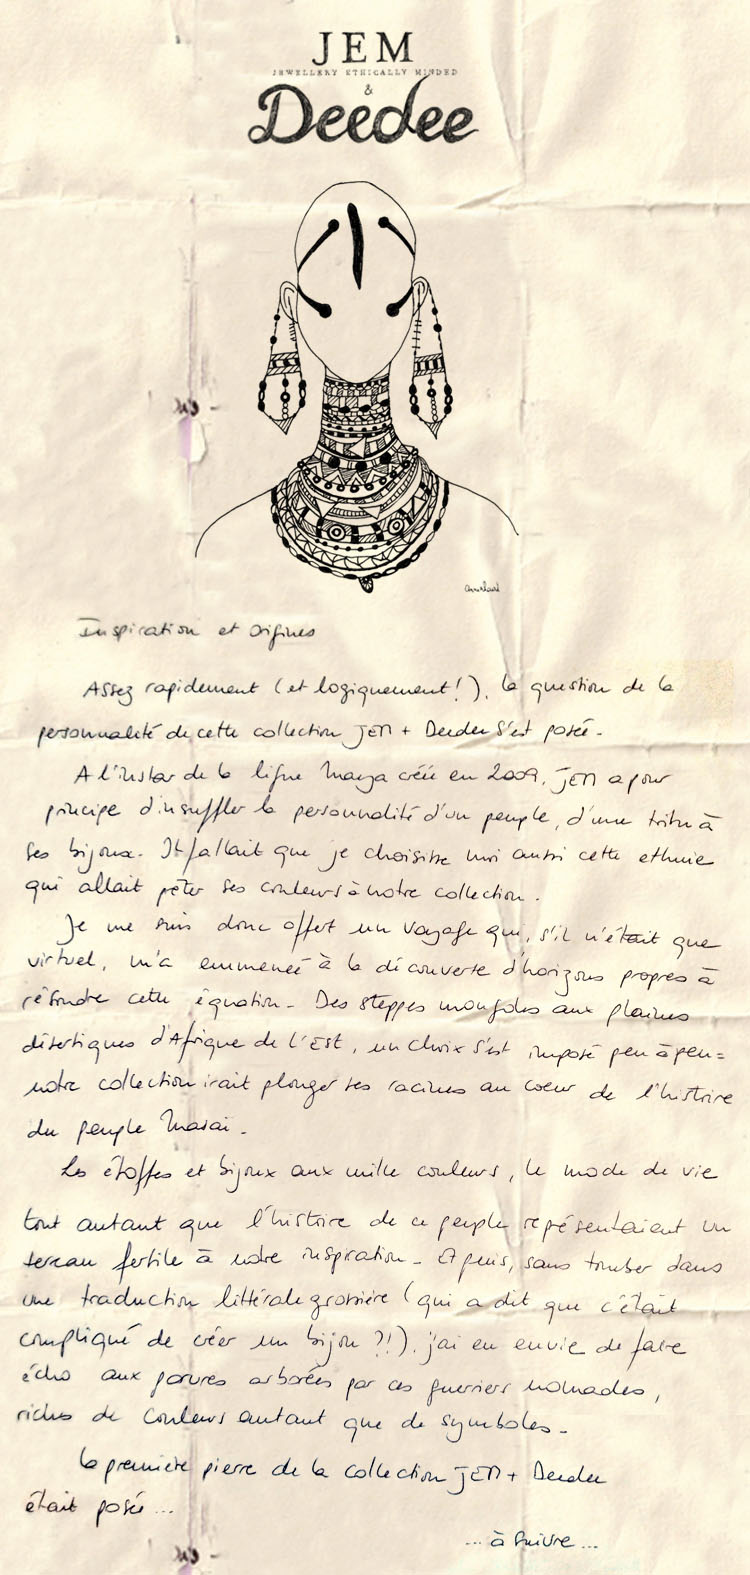 JEM
JEWELLERY ETHICALLY MINDED
&
Deedee
Inspiration et Origines
Assez rapidement (et logiquement!), la question de la
personnalité de cette collection JEM + Deedee s'est posée.
A l'instar de la ligne Maya créée en 2009, JEM a pour
principe d'insuffler la personnalité d'un peuple, d'une tribu à
ses bijoux. Il fallait que je choisisse moi aussi cette ethnie
qui allait prêter ses couleurs à notre collection.
Je me suis donc offert un voyage qui, s'il n'était que
virtuel, m'a emmenée à la découverte d'horizons propres à
résoudre cette équation. Des steppes mongoles aux plaines
désertiques d'Afrique de l'Est, un choix s'est imposé peu à peu =
notre collection irait plonger ses racines au coeur de l'histoire
du peuple Masai.
Les étoffes et bijoux aux mille couleurs, le mode de vie
tout autant que l'histoire de ce peuple représentaient un
terreau fertile à notre inspiration. Et puis, sans tomber dans
une traduction littérale grossière (qui a dit que c'était
compliqué de créer un bijou ?!), j'ai eu envie de faire
écho aux parures arborées par ces guerriers nomades,
riches de couleurs autant que de symboles.
La première pierre de la collection JEM + Deedee
était posée...
... à suivre...